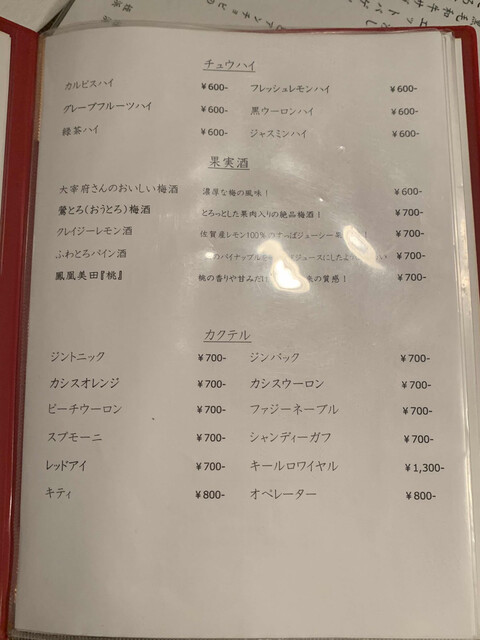 チュウハイ
カルピスハイ ￥600- フレッシュレモンハイ ￥600-
グレープフルーツハイ ￥600- 黒ウーロンハイ ￥600-
緑茶ハイ ￥600- ジャスミンハイ ￥600-
果実酒
大宰府さんのおいしい梅酒 濃厚な梅の風味！ ￥600-
鶯とろ(おうとろ)梅酒 とろっとした果肉入りの絶品梅酒！ ￥700-
クレイジーレモン酒 佐賀産レモン100％のすっぱジューシー果 ！ ￥700-
ふわとろパイン酒 のパイナップルを ジュースにしたよう い ￥700-
鳳凰美田『桃』 桃の香りや甘みだけ の質感！ ￥700-
カクテル
ジントニック ￥700- ジンバック ￥700-
カシスオレンジ ￥700- カシスウーロン ￥700-
ピーチウーロン ￥700- ファジーネーブル ￥700-
スプモーニ ￥700- シャンディーガフ ￥700-
レッドアイ ￥700- キールロワイヤル ￥1,300-
キティ ￥800- オペレーター ￥800-